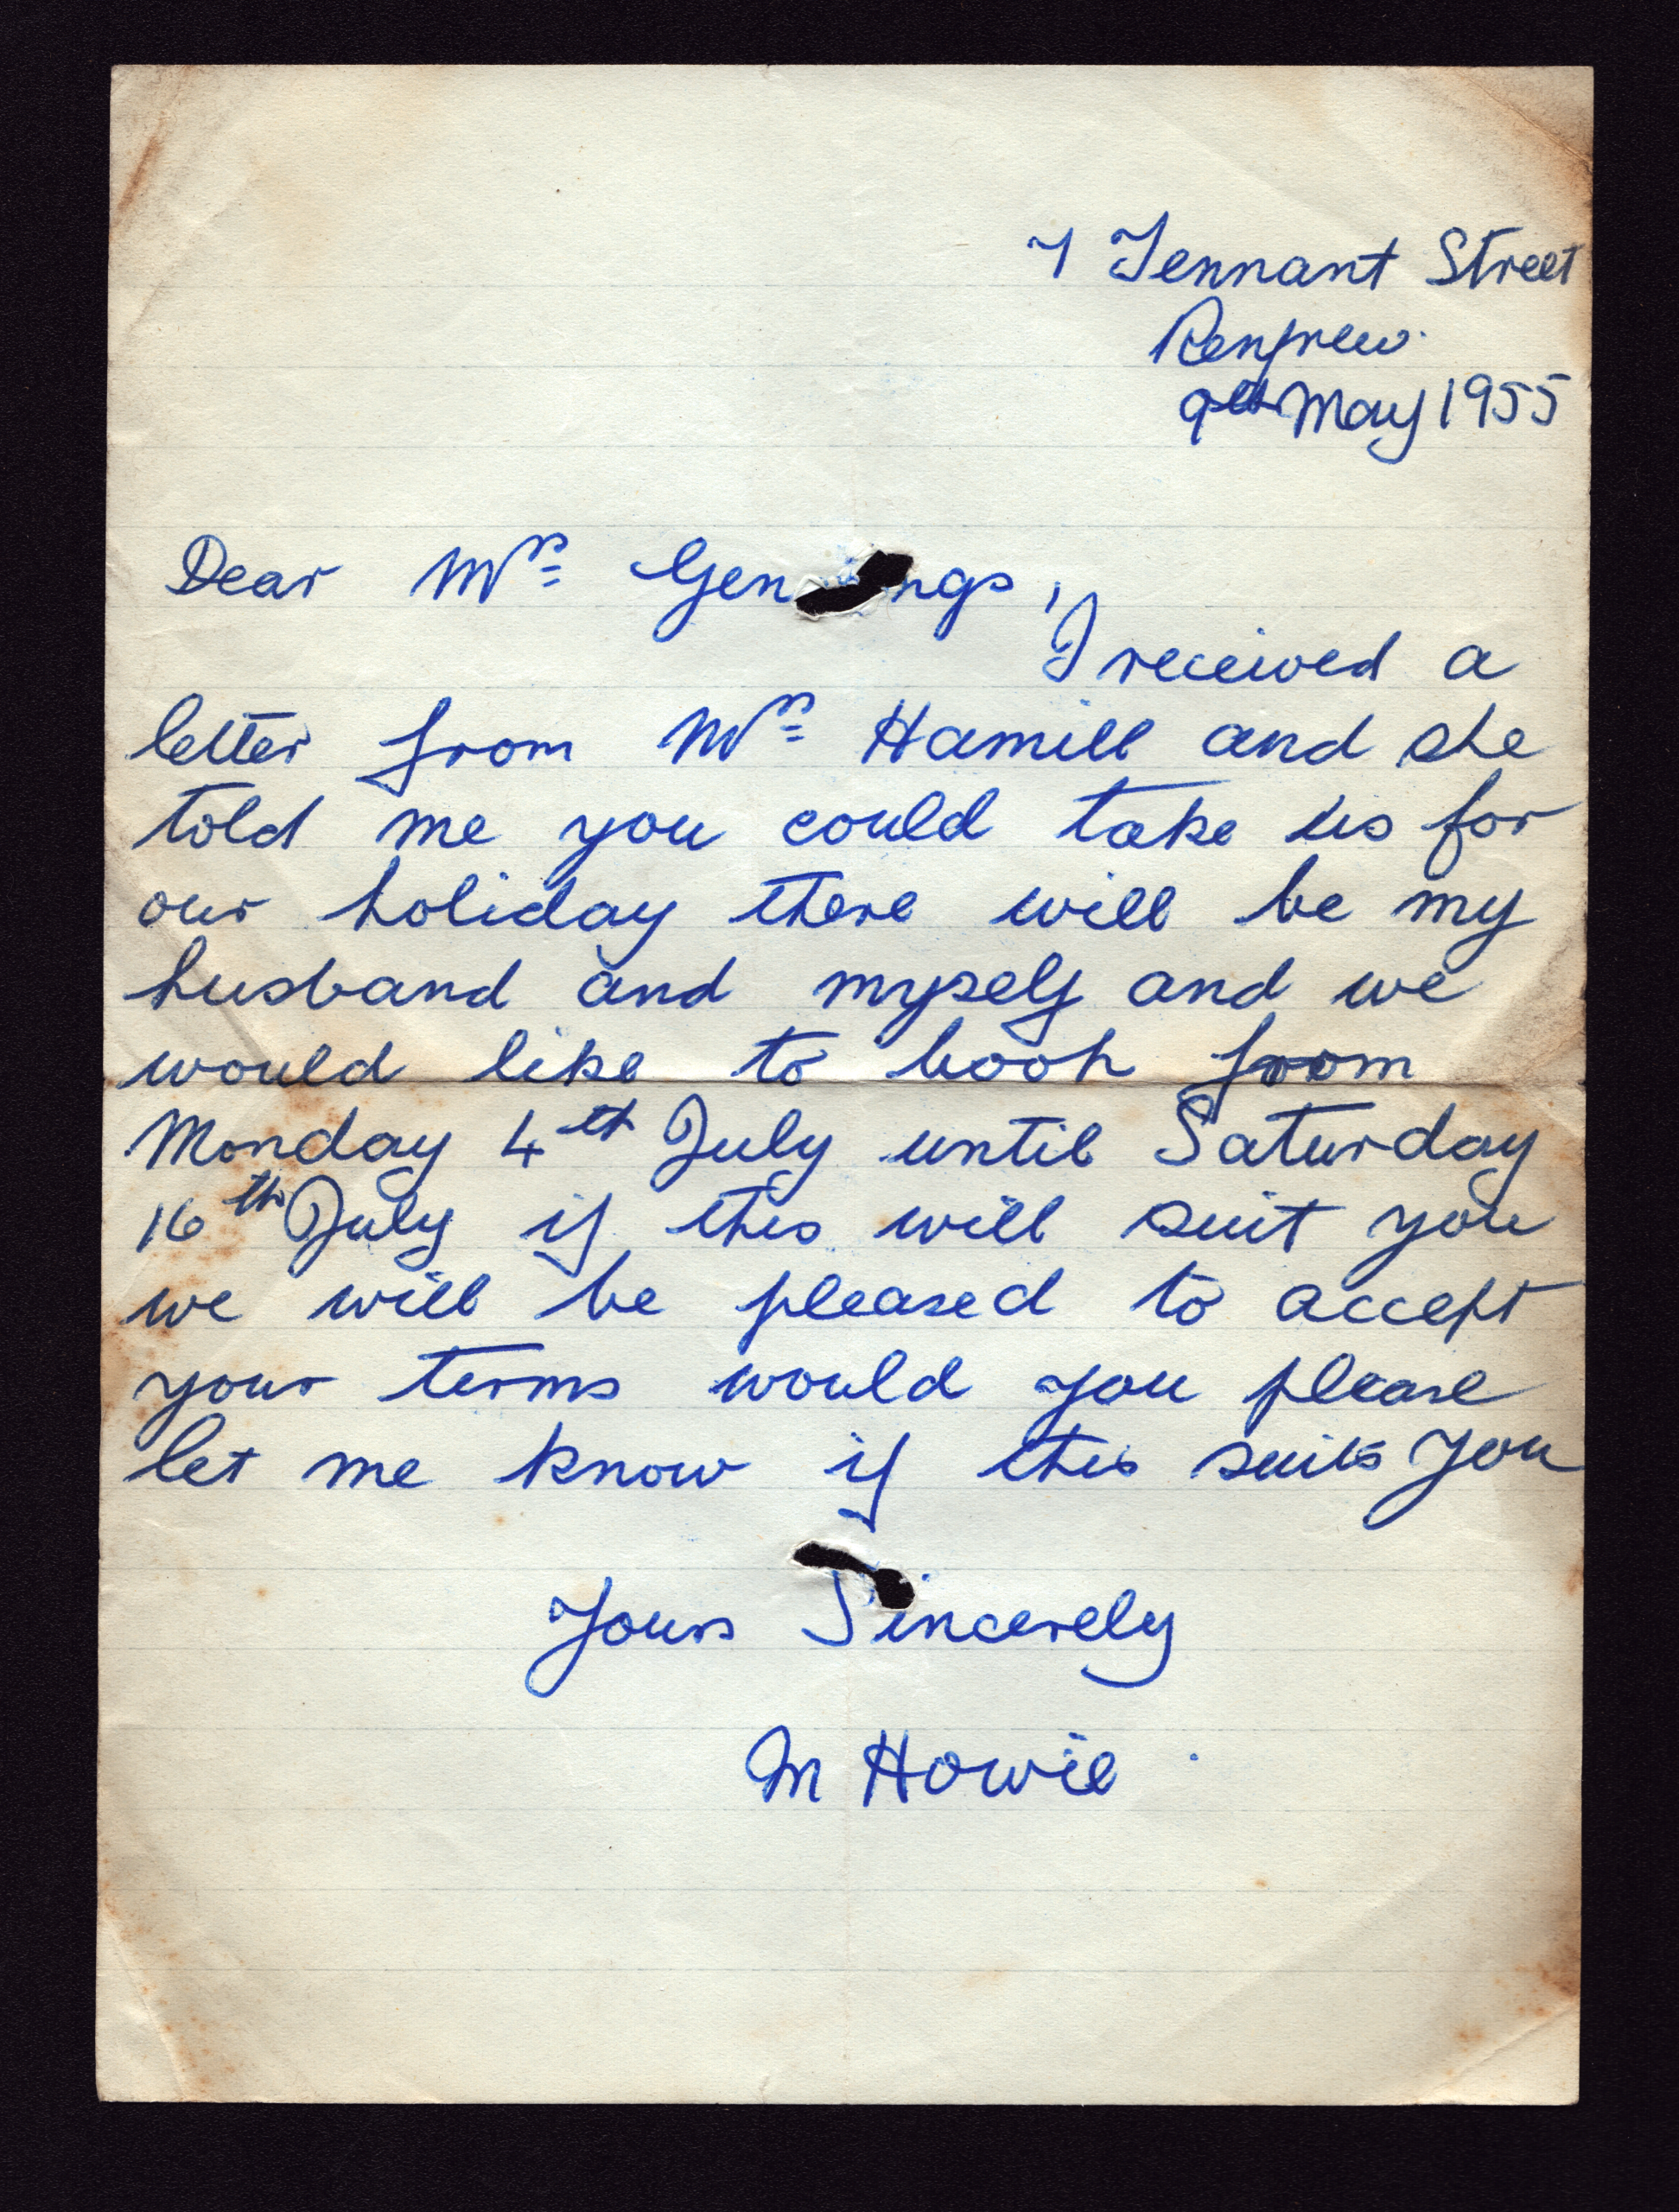 7 Tennant Street
Renfrew.
9th May 1955
Dear Mrs
I received a
letter from Mrs Hamill and she
told me you could take us for
our holiday there will be my
husband and myself and we
would like to book from
Monday 4th July until Saturday
16th July if this will suit you
we will be pleased to accept
your terms would you please
let me know if this suits you
Yours Sincerely
M Howie